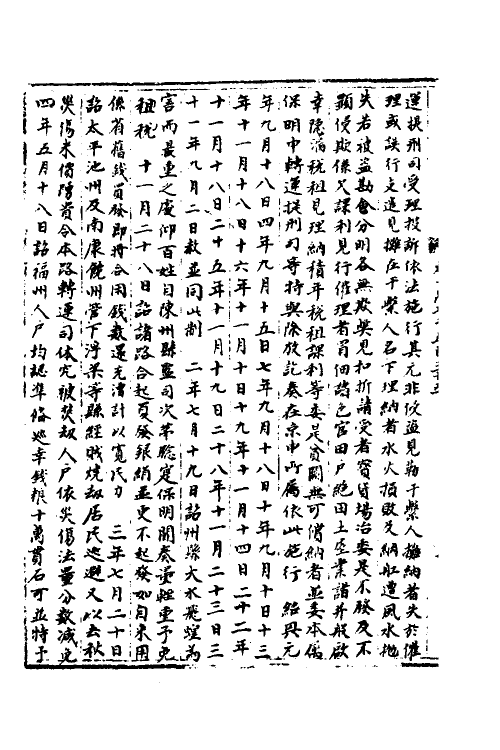 運提刑司受理投訴依法施行其元非侵盜見勒干繫人攤納者失於催
理或誤行支遣見攤在干繫人名下理納者水火損敗欠納船遭風水拋
失若被盜勘會分明各無欺弊見扣折請受者寳貨場冶委是不發及不
顯侵欺係欠課利見行催理者買佃諸色官田戶絶田土坐業諸井般敵
幸隱漏稅租見理納積年稅租課利等委是貧闕無可償納者並委本
保明申轉運提刑司等持與除放訖奏在京申所屬依此施行 紹興元
年九月十八日四年九月十五日七年九月十八日十年九月十日十三
年十一月十八日十六年十一月十日十九年十一月十四日二十二年
十一月十八日二十五年十一月十九日二十八年十一月二十三日三
十一年九月二日赦並同此制 二年七月十九日詔州縣大水飛蝗為
害而最重之處仰百姓自陳州縣監司次第驗定保明聞奏當與重予免
租稅 十一月二十八日詔諸路合起買發銀絹並更不起發如自來用
係省舊錢買發即將合用錢數還充漕計以寬民力 三年七月二十日
詔太平池州及南康饒州管下浮梁等縣經賊燒劫居民逃避又以去秋
災傷米價踴貴令本路轉運司体究被焚劫人戶依災傷法量分數減免
四年五月十八日詔福州人戶均認準備巡幸錢糧十萬貫石可並特予